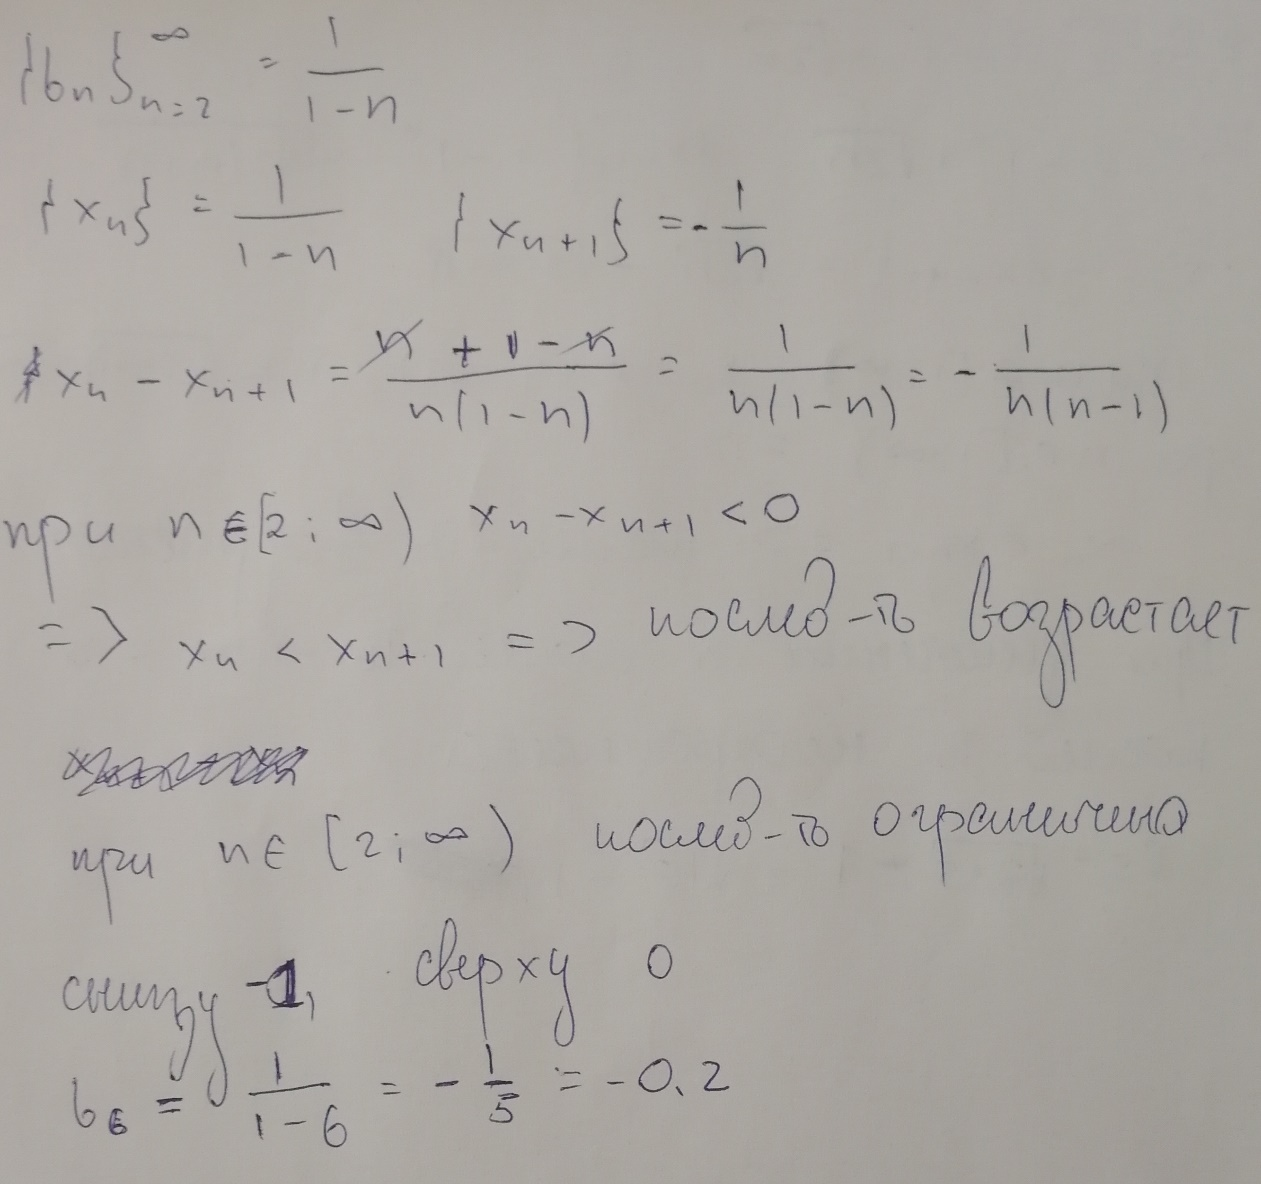 {bn}∞n=2 = 1/(1-n)
{xn} = 1/(1-n) {xn+1} = - 1/n
xn - xn+1 = (n + 1 - n)/(n(1-n)) = 1/(n(1-n)) = - 1/(n(n-1))
при n∈[2; ∞) xn - xn+1 < 0
=> xn < xn+1 => послед-ть возрастает
при n∈ [2; ∞) послед-ть ограничена
снизу -1, сверху 0
b6 = 1/(1-6) = - 1/5 = -0.2